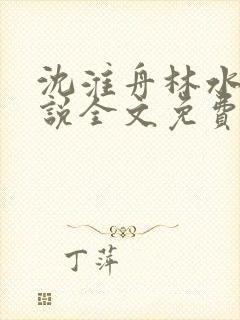 沈淮舟林水
説全文免費
丁萍